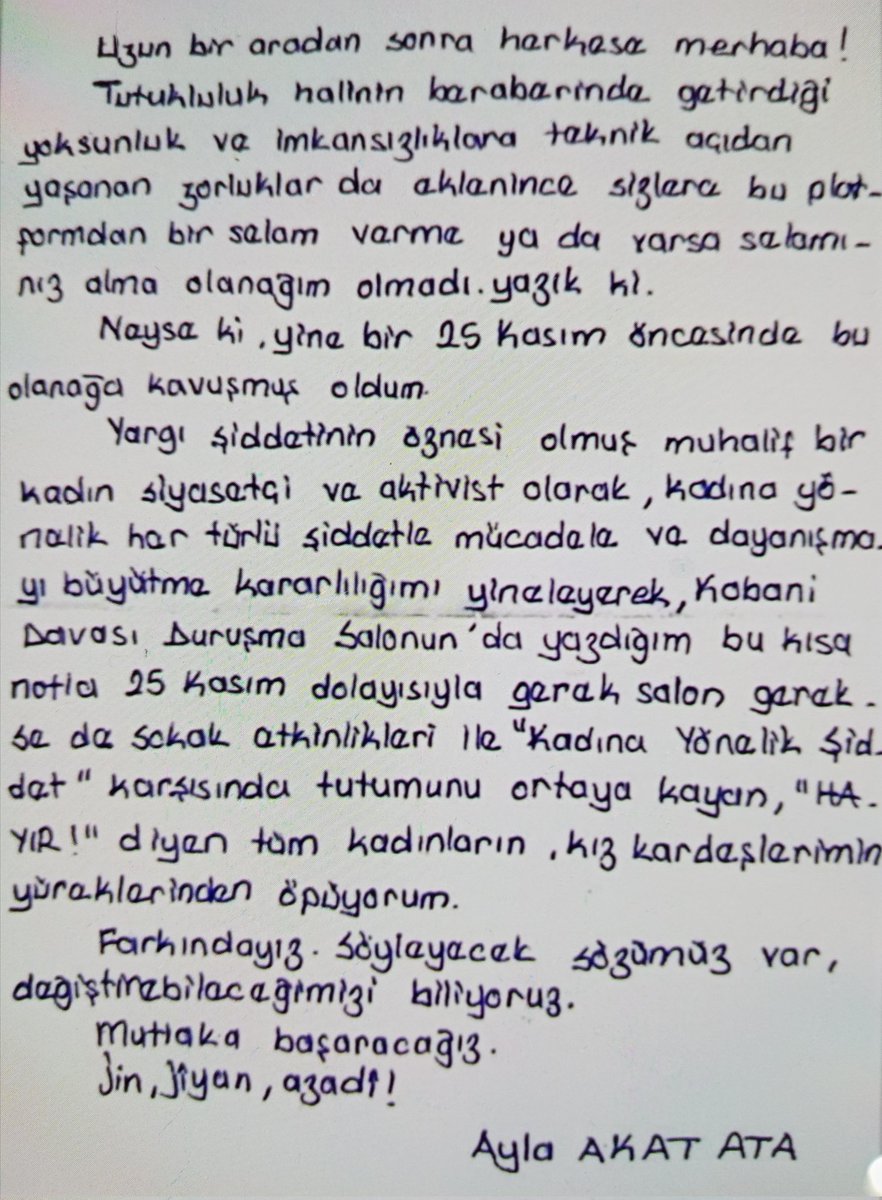 Uzun bir aradan sonra herkese merhaba!
Tutukluluk halinin beraberinde getirdiği
yoksunluk ve imkansızlıklara teknik açıdan
yaşanan zorluklar da eklenince sizlere bu plat-
formdan bir selam verme ya da varsa selamı-
nız alma olanağım olmadı. yazık ki.
Neyse ki, yine bir 25 Kasım öncesinde bu
olanağa kavuşmuş oldum.
Yargı şiddetinin öznesi olmuş muhalif bir
kadın siyasetçi ve aktivist olarak, kadına yö-
nelik her türlü şiddetle mücadele ve dayanışma-
yı büyütme kararlılığımı yineleyerek, Kobani
Davası Duruşma Salonun'da yazdığım bu kısa
notla 25 Kasım dolayısıyla gerek salon gerek-
se de sokak etkinlikleri ile "Kadına Yönelik Şid-
det" karşısında tutumunu ortaya koyan, "HA-
YIR!" diyen tüm kadınların, kız kardeşlerimin
yüreklerinden öpüyorum.
Farkındayız. Söyleyecek sözümüz var,
değiştirebileceğimizi biliyoruz.
Mutlaka başaracağız.
Jin, Jîyan, azadî!
Ayla AKAT ATA